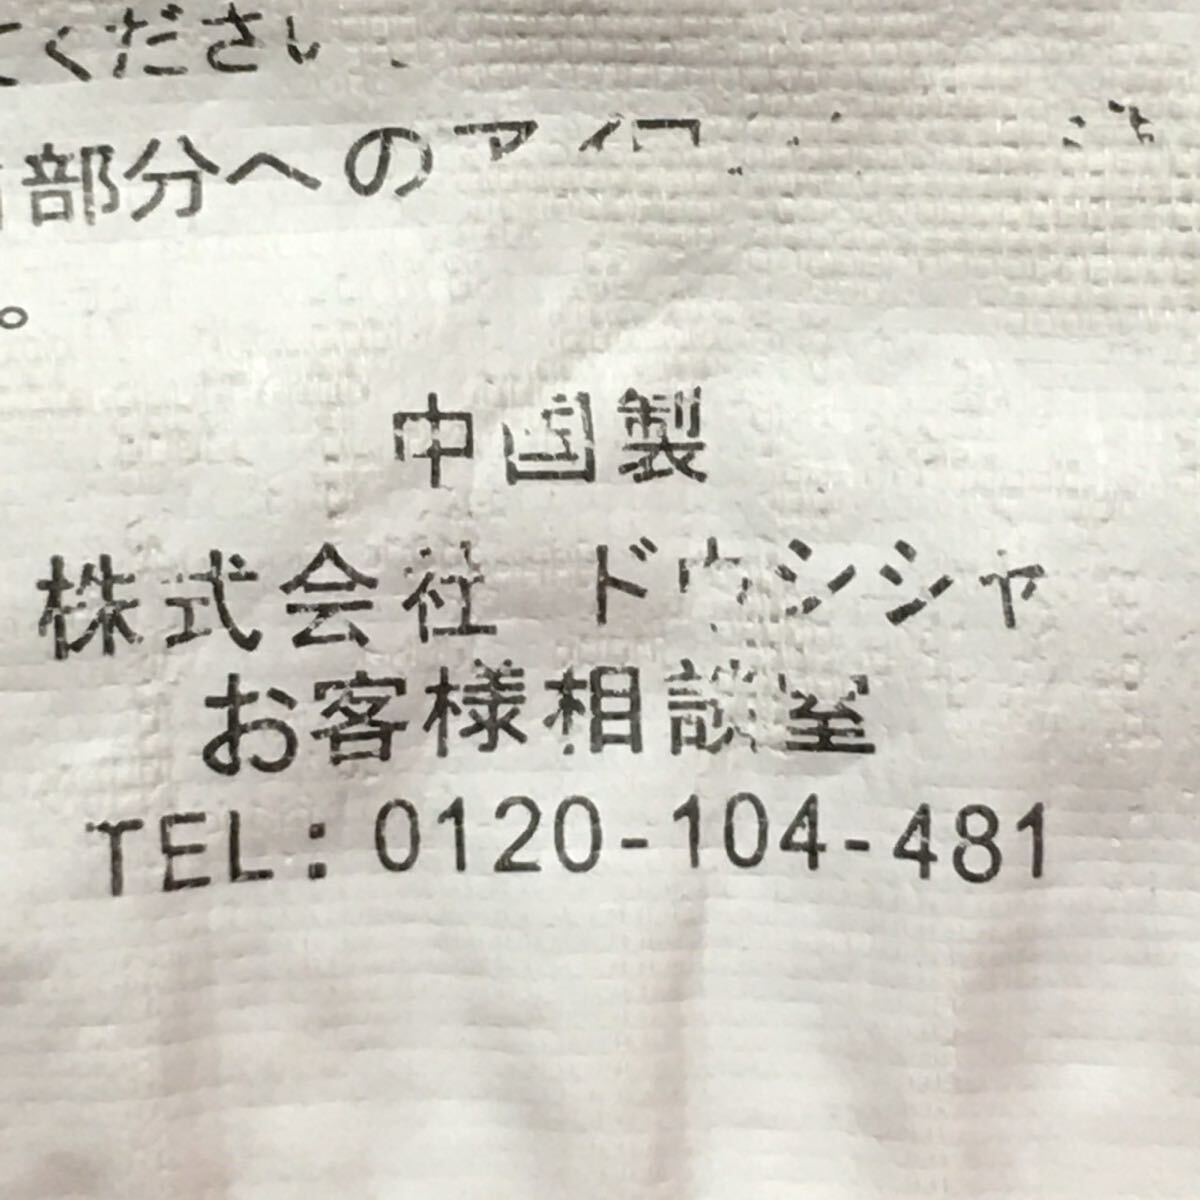 てください
部分へのアイロ
。
中国製
株式会社 ドウシシャ
お客様相談室
TEL:0120-104-481